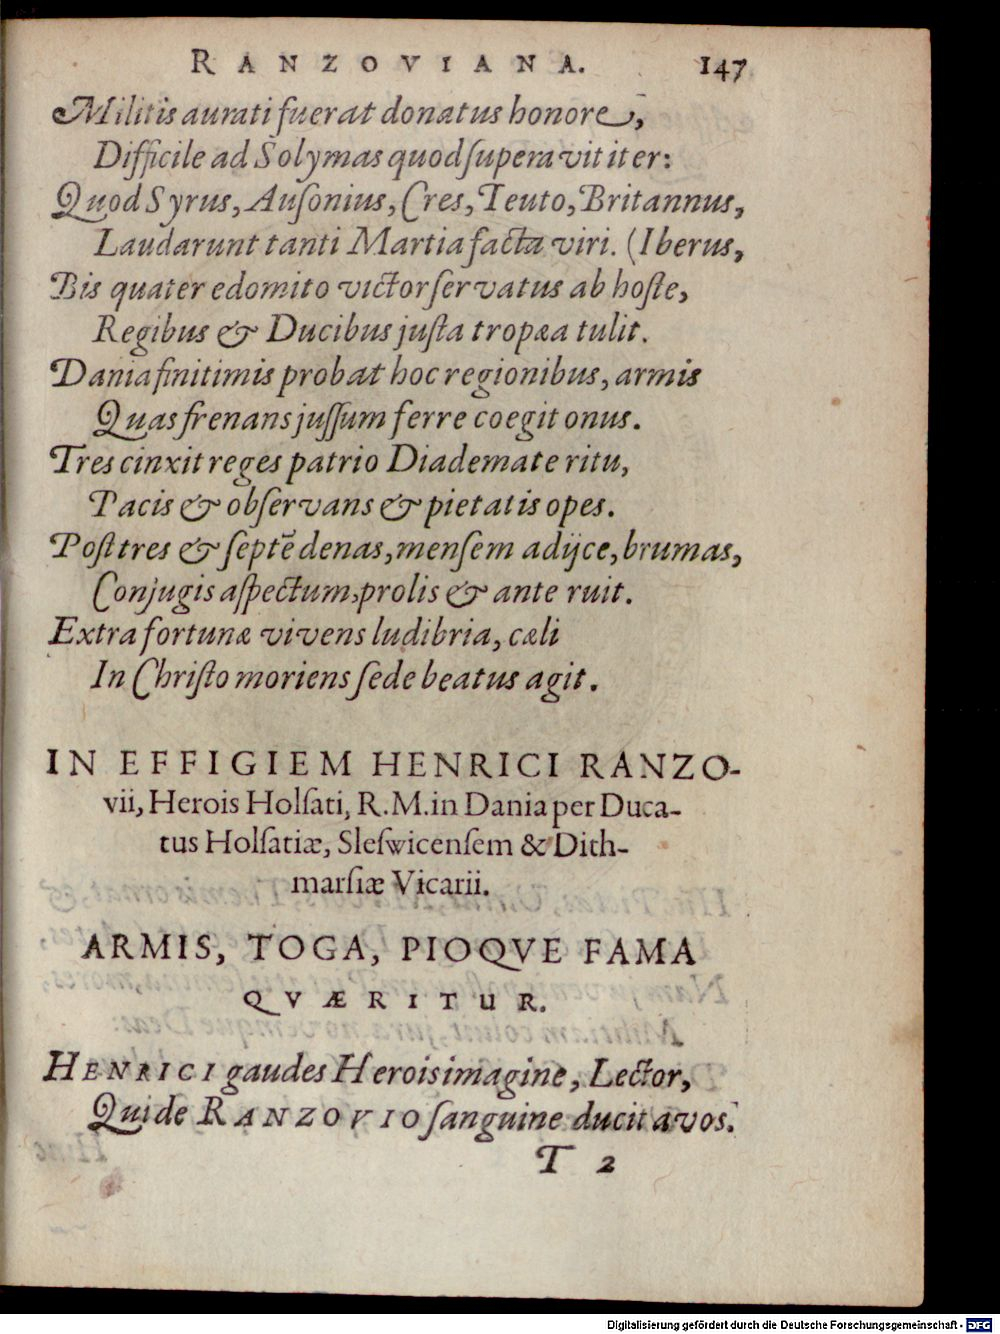 RANZOVIANA. 147
Militis aurati fuerat donatus honore,
Difficile ad Solymas quod superavit iter:
Quod Syrus, Ausonius, Cres, Teuto, Britannus,
Laudarunt tanti Martia facta viri. (Iberus,
Bis quater edomito victor servatus ab hoste,
Regibus & Ducibus justa tropæa tulit.
Dania finitimis probat hoc regionibus, armis
Quas frenans jussum ferre coegit onus.
Tres cinxit reges patrio Diademate ritu,
Pacis & observans & pietatis opes.
Post tres & septē denas, mensem adijce, brumas,
Conjugis aspectum, prolis & ante ruit.
Extra fortunæ vivens ludibria, cæli
In Christo moriens sede beatus agit.
IN EFFIGIEM HENRICI RANZO-
vii, Herois Holsati, R. M. in Dania per Duca-
tus Holsatiæ, Sleswicensem & Dith-
marsiæ Vicarii.
ARMIS, TOGA, PIOQVE FAMA
QVÆRITUR.
HENRICI gaudes Herois imagine, Lector,
Qui de RANZOVIO sanguine ducit avos.
T 2
Digitalisierung gefördert durch die Deutsche Forschungsgemeinschaft - DFG